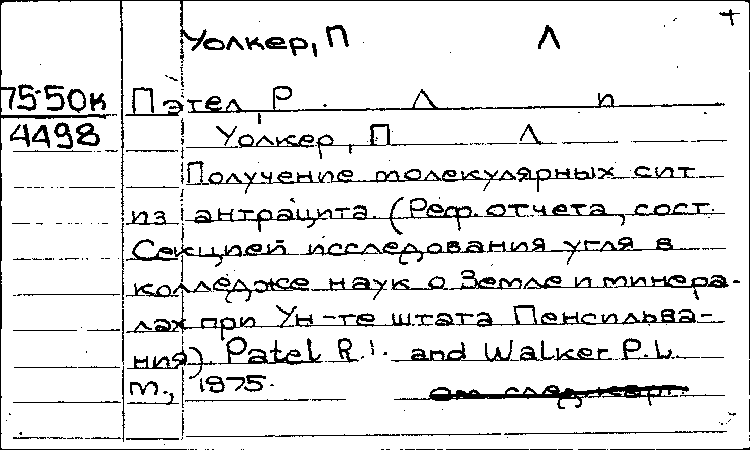 +
Уолкер, П Л
75-50к Пэтел, Р. Л п
4498 Уолкер, П Л
Получение молекулярных сит
из антрацита. (Реф. отчета, сост.
Секцией исследования угля в
колледже наук о Земле и минера-
лах при Ун-те штата Пенсильва-
ния). Patel R.L. and Walker P.L.
М., 1975.
см. след. карт.